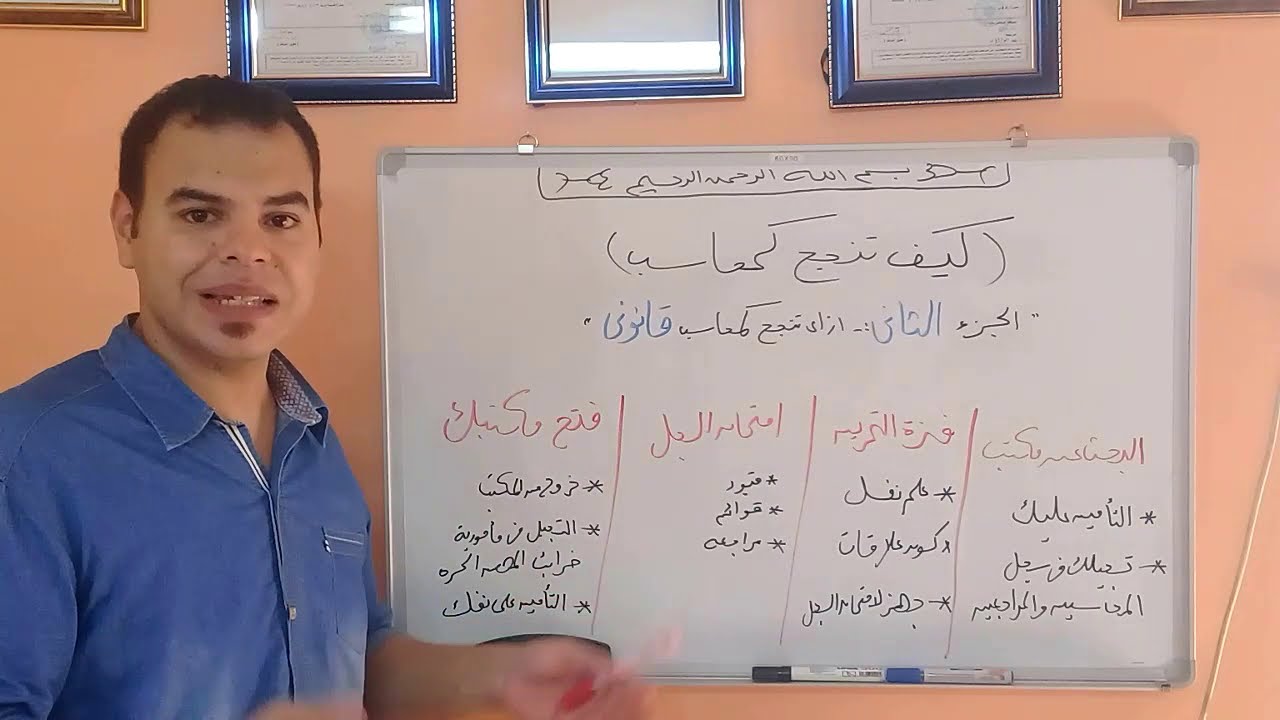 بسم الله الرحمن الرحيم
(كيف تنجح كمحاسب)
"الجزء الثانى :- ازاى تنجح كمحاسب قانونى"
البحث عن مكتب
* التأمين عليك
* تسجيلك فى سجل
المحاسبين والمراجعين
فترة التمرين
* علم نفسك
* كون علاقات
* جهز لامتحان السجل
امتحان السجل
* قيود
* قوائم
* مراجعه
فتح مكتبك
* خروج من المكتب
* التسجيل فى مأمورية
ضرائب المهن الحره
* التأمين على نفسك